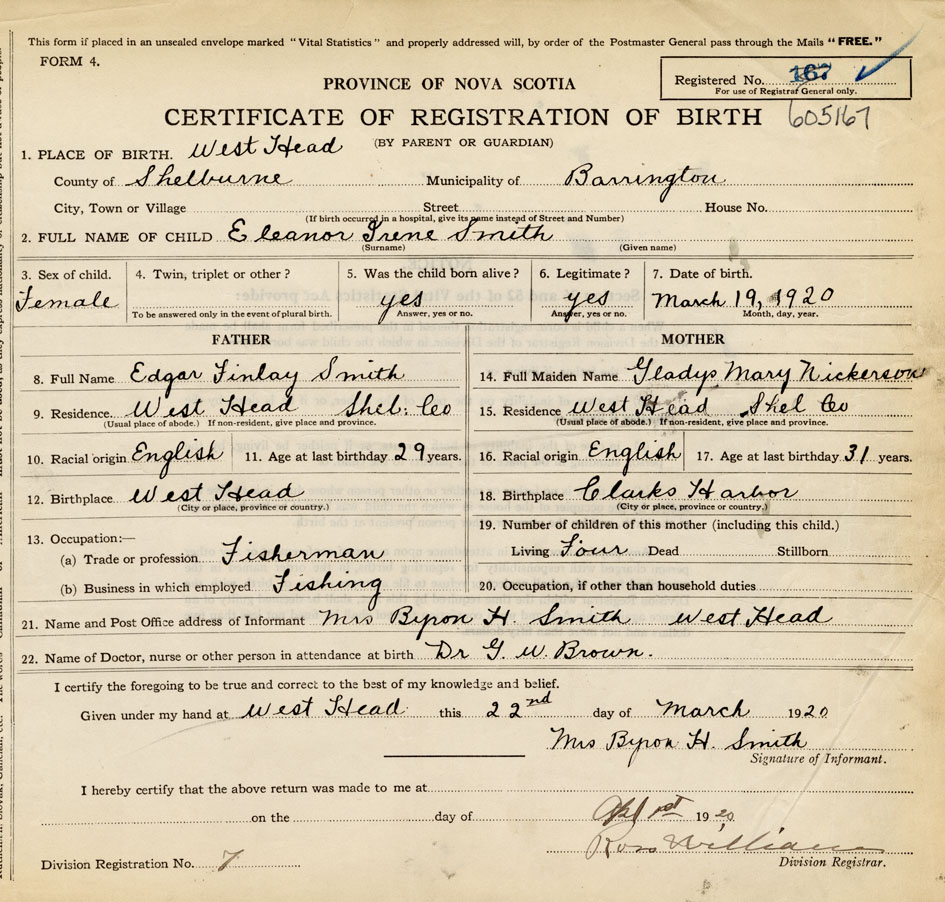 This form if placed in an unsealed envelope marked "Vital Statistics" and properly addressed will, by order of the Postmaster General pass through the Mails "FREE."
FORM 4.
Registered No. 167
For use of Registrar General only.
PROVINCE OF NOVA SCOTIA
CERTIFICATE OF REGISTRATION OF BIRTH 605167
(BY PARENT OR GUARDIAN)
1. PLACE OF BIRTH. West Head
County of Shelburne Municipality of Barrington
City, Town or Village Street House No.
(If birth occurred in a hospital, give its name instead of Street and Number)
2. FULL NAME OF CHILD Eleanor Irene Smith
(Surname) (Given name)
3. Sex of child. 4. Twin, triplet or other? 5. Was the child born alive? 6. Legitimate? 7. Date of birth.
Female yes yes March 19, 1920
To be answered only in the event of plural birth. Answer, yes or no. Answer, yes or no. Month, day, year.
FATHER MOTHER
8. Full Name Edgar Finlay Smith 14. Full Maiden Name Gladys Mary Nickerson
9. Residence. West Head Shel: Co 15. Residence West Head Shel Co
(Usual place of abode.) If non-resident, give place and province. (Usual place of abode.) If non-resident, give place and province.
10. Racial origin English 11. Age at last birthday 29 years. 16. Racial origin English 17. Age at last birthday 31 years.
12. Birthplace West Head 18. Birthplace Clarks Harbor
(City or place, province or country.) (City or place, province or country.)
13. Occupation:— 19. Number of children of this mother (including this child.)
(a) Trade or profession Fisherman Living Four Dead Stillborn
(b) Business in which employed Fishing 20. Occupation, if other than household duties
21. Name and Post Office address of Informant Mrs Byron H. Smith West Head
22. Name of Doctor, nurse or other person in attendance at birth Dr G. W. Brown.
I certify the foregoing to be true and correct to the best of my knowledge and belief.
Given under my hand at West Head this 22nd day of March 1920
Mrs Byron H. Smith
Signature of Informant.
I hereby certify that the above return was made to me at
on the day of Apl 1st 1920
Ross Williams
Division Registration No. 7 Division Registrar.